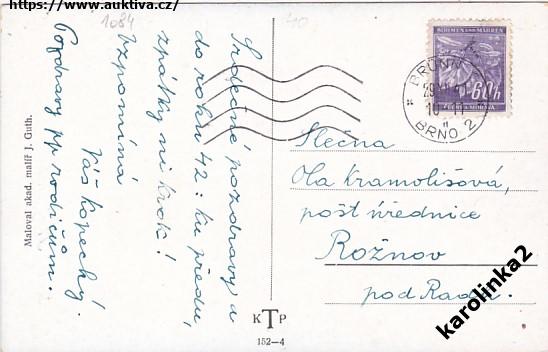 https://www.auktiva.cz/
1084
40
Srdečné pozdravy a
do roku 42: ku předu,
zpátky ni krok!
Vzpomíná
Váš Kopecký.
Pozdravy pp rodičům.
Maloval akad. malíř J. Guth.
BÖHMEN UND MÄHREN
60 h
ČECHY A MORAVA
BRÜNN 2
BRNO 2
Slečna
Ola Kramolišová,
pošt. úřednice
Rožnov
pod Radh.
KTP
152-4
karolinka2